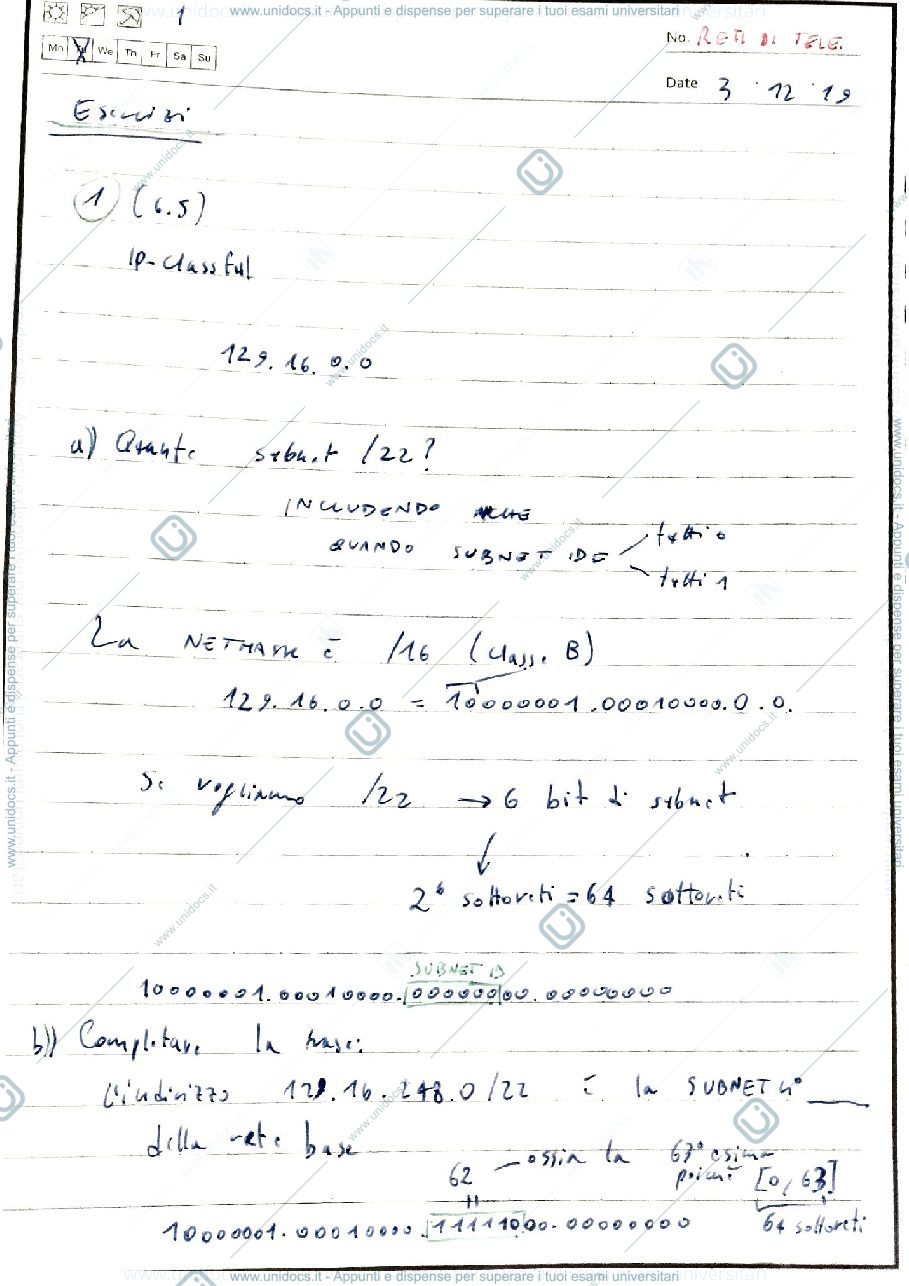 www.unidocs.it - Appunti e dispense per superare i tuoi esami universitari
1
No. RETI DI TELE.
Mo Tu We Th Fr Sa Su
Date 3 . 12 . 19
Esercizi
1 (6.5)
IP-Classful
129.16.0.0
a)) Quante subnet /22?
INCLUDENDO ANCHE
QUANDO SUBNET ID È tutti 0
tutti 1
La NETMASK è /16 (classe B)
129.16.0.0 = 10000001.00010000.0.0.
Se vogliamo /22 → 6 bit di subnet
2^6 sottoreti = 64 sottoreti
SUBNET ID
10000001.00010000.00000000.00000000
b)) Completare la frase:
L'indirizzo 129.16.248.0/22 è la SUBNET n° ____
della rete base
62 ossia la 63° esima
poiché [0, 63]
64 sottoreti
10000001.00010000.11111000.00000000
www.unidocs.it - Appunti e dispense per superare i tuoi esami universitari